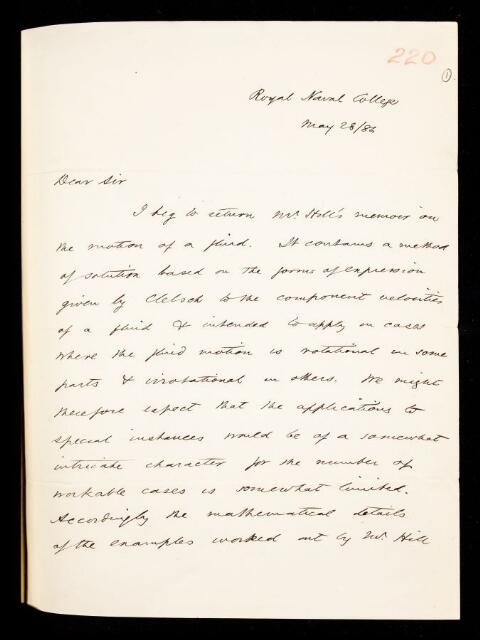 220
1
Royal Naval College
May 28/86
Dear Sir
I beg to return Mr. Hill's memoir on
the motion of a fluid. It contains a method
of solution based on the forms of expression
given by Clebsch to the component velocities
of a fluid & intended to apply in cases
where the fluid motion is rotational in some
parts & irrotational in others. We might
therefore expect that the applications to
special instances would be of a somewhat
intricate character for the number of
workable cases is somewhat limited.
Accordingly the mathematical details
of the examples worked out by Mr. Hill